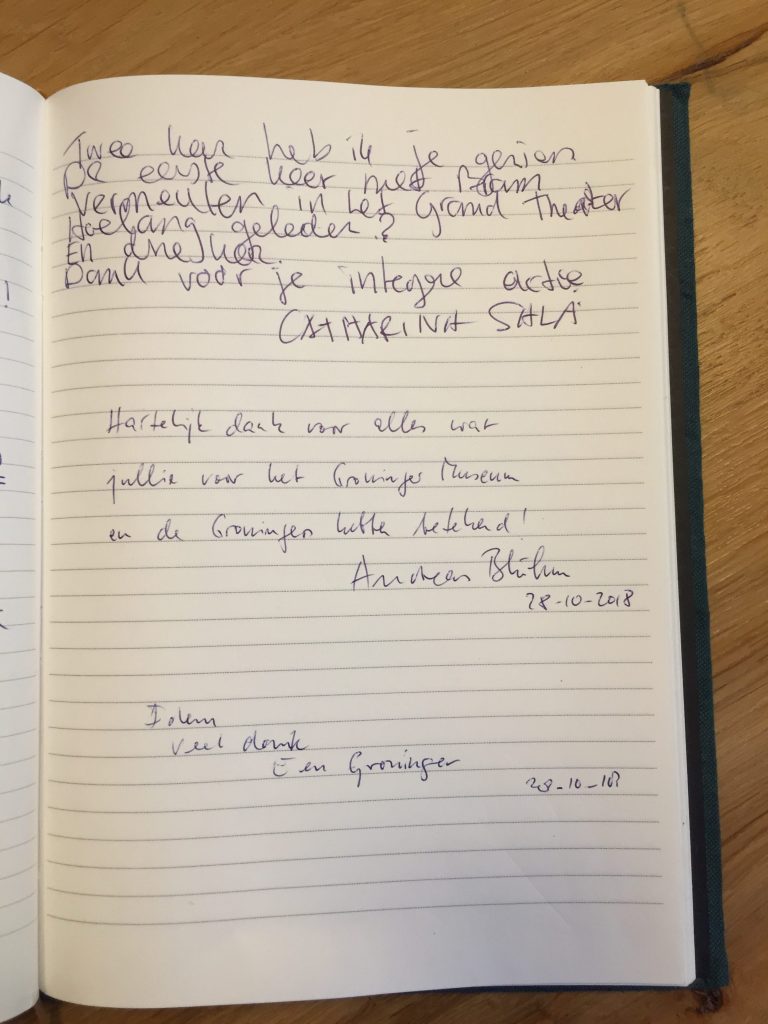 Twee keer heb ik je gezien
De eerste keer met Bram
Vermeulen in het Grand Theater
Hoelang geleden?
En
Dank voor je integre actie
CATHARINA SALA
Hartelijk dank voor alles wat
jullie voor het Groninger Museum
en de Groningen hebben betekend!
Andreas Blühm
28-10-2018
Idem
veel dank
Een Groninger
28-10-18
!